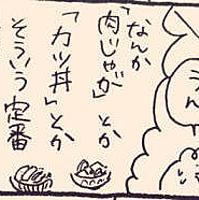 なんか
「肉じゃが」とか
「カツ丼」とか
そういう定番
うん